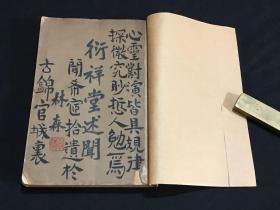 心靈對演皆具規律
探微究眇哲人勉焉
衍祥堂述聞
閒希宧拾遺於
古錦官城裏
林森